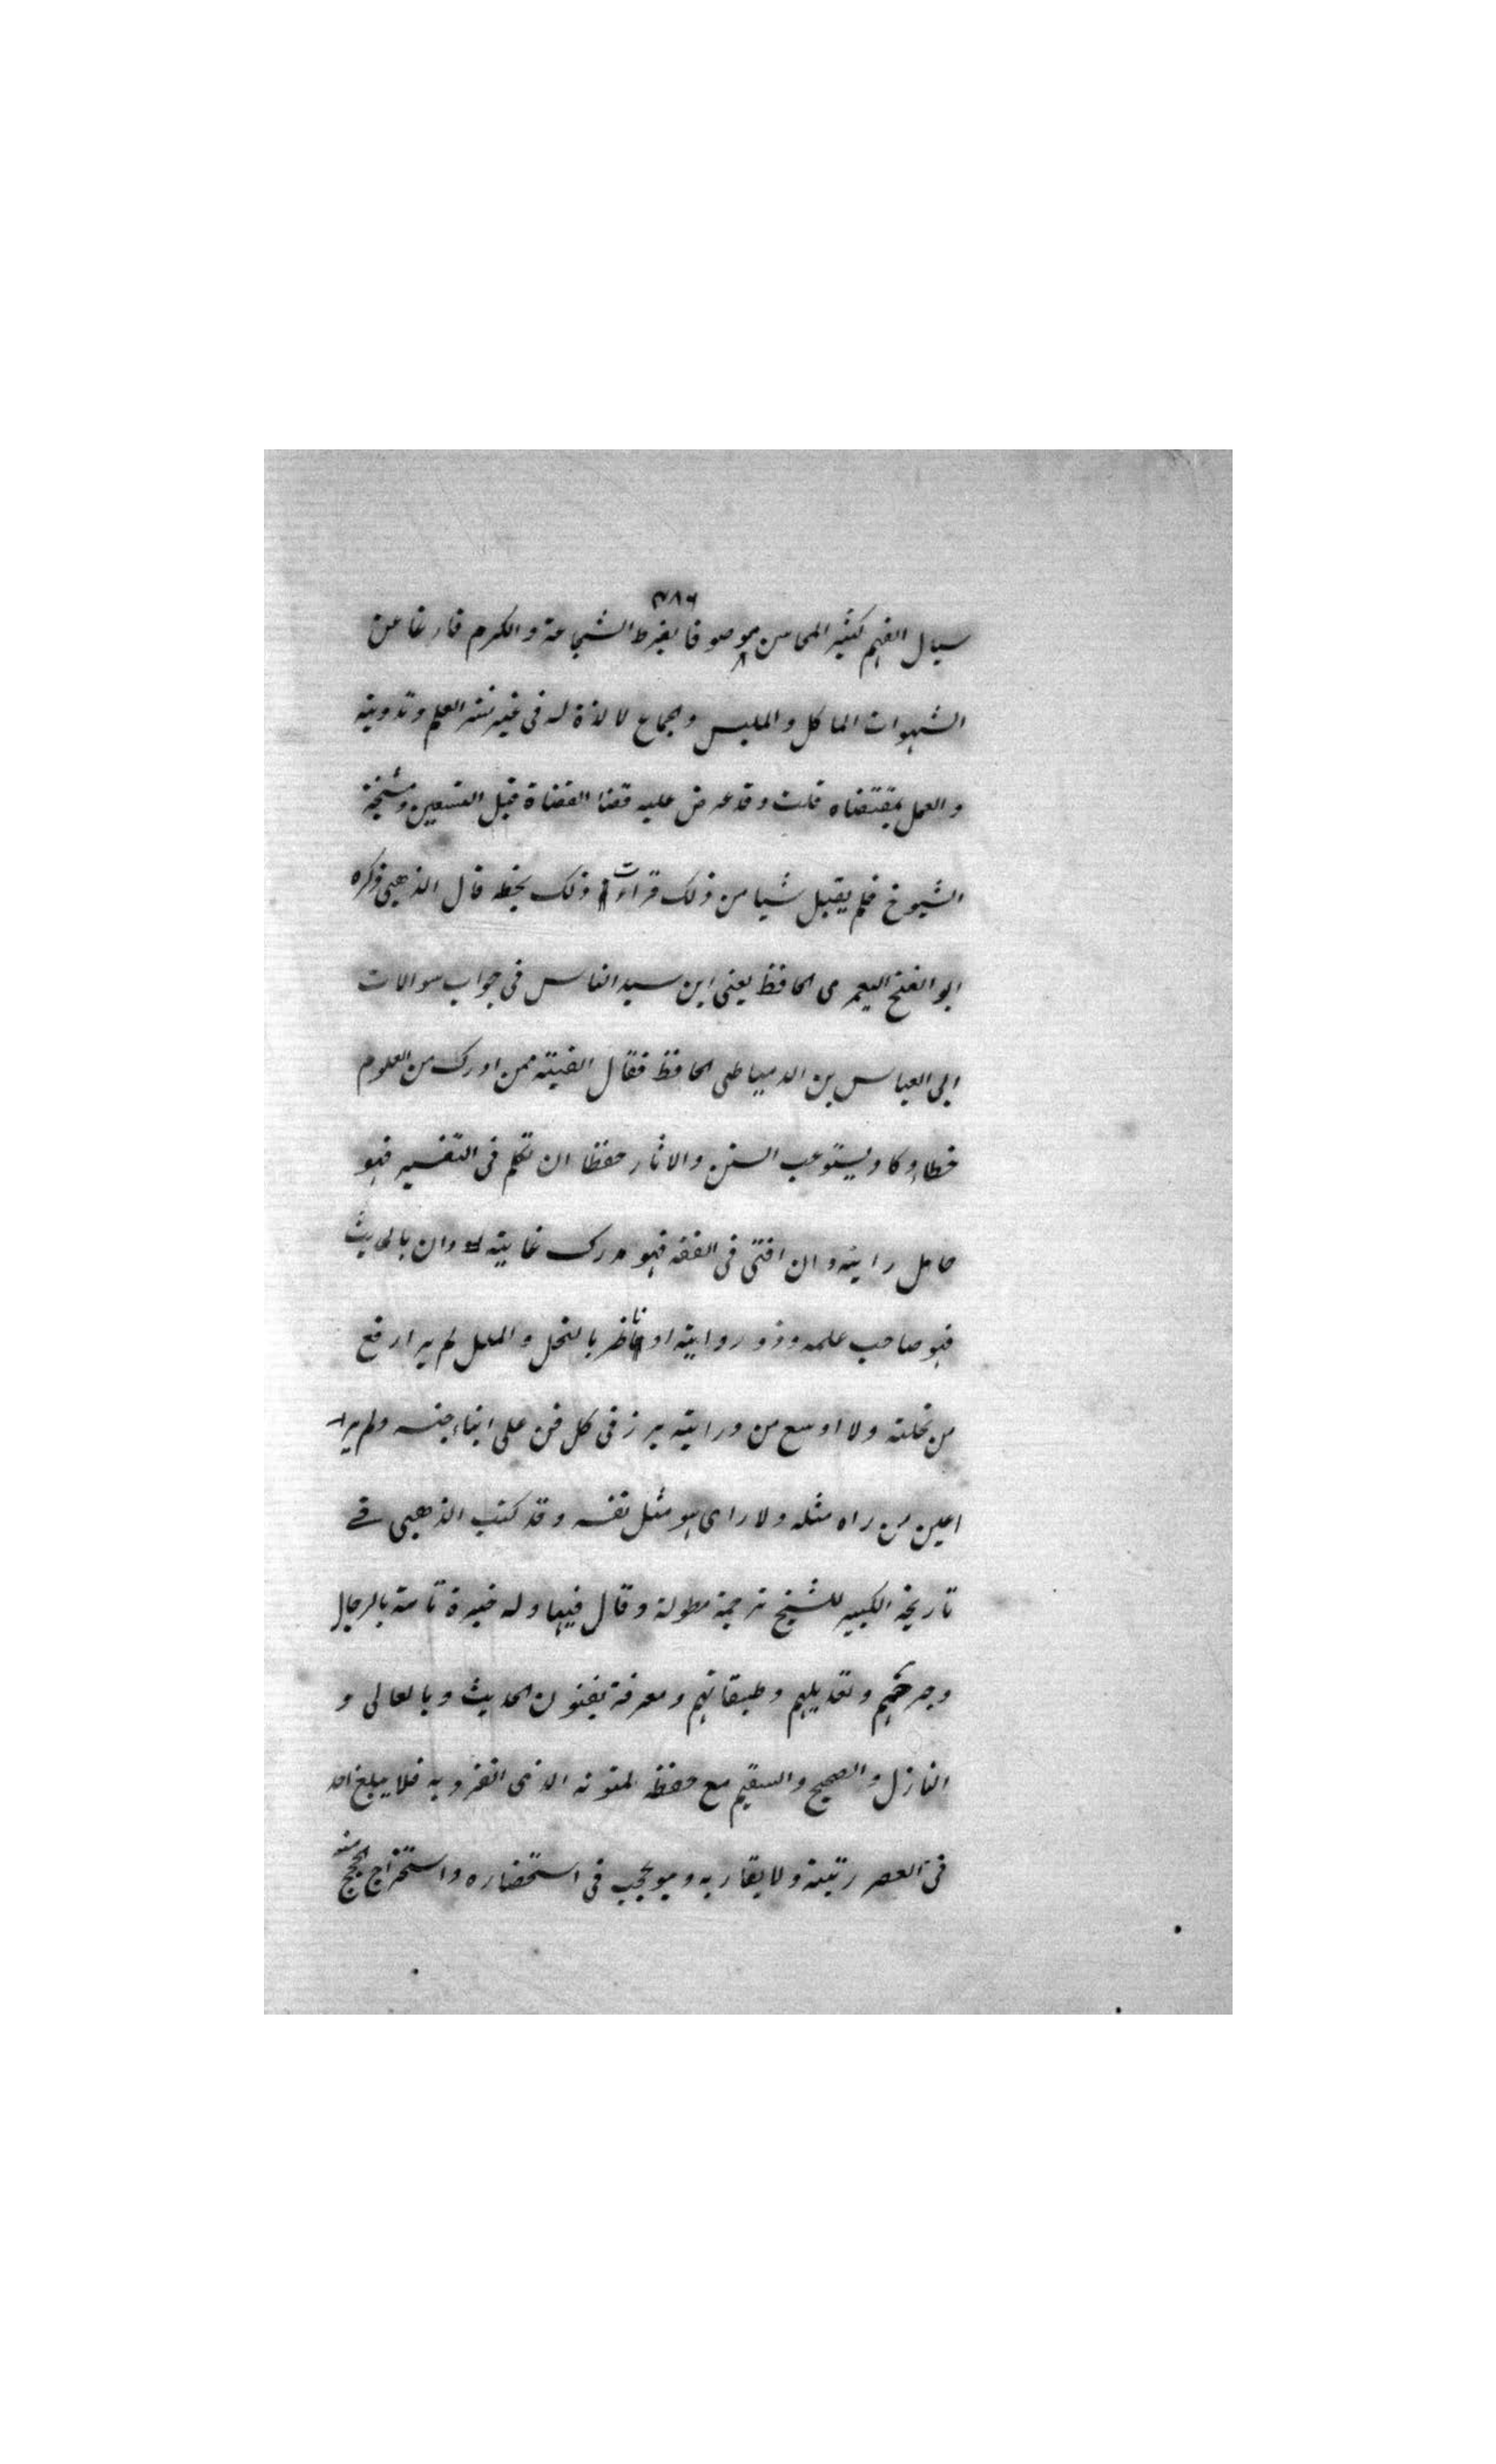 ٣٨٦
سيال الفهم كثير المحاسن موصوفا بفرط الشجاعة والكرم فارغا عن
الشهوات الماكل والملبس والجماع لا لذة له في غير نشر العلم وتدوينه
والعمل بمقتضاه قلت وقد عرض عليه قضا القضاة قبل التسعين ومشيخة
الشيوخ فلم يقبل شيا من ذلك قرات ذلك بخطه قال الذهبي ذكره
ابو الفتح اليعمرى الحافظ يعني ابن سيد الناس في جواب سوالات
ابي العباس بن الدمياطي الحافظ فقال الفيته ممن ادرك من العلوم
حظا وكاد يستوعب السنن والاثار حفظا ان تكلم في التفسير فهو
حامل رايته وان افتى في الفقه فهو مدرك غايته وان بالحديث
فهو صاحب علمه وذو روايته او ناظر بالنحل والملل لم ير ارفع
من نحلته ولا اوسع من درايته برز في كل فن على ابناء جنسه ولم ير
اعين من راه مثله ولا راى هو مثل نفسه وقد كتب الذهبي في
تاريخه الكبير للشيخ ترجمة مطولة وقال فيها وله خبرة تامة بالرجال
وجرحهم وتعديلهم وطبقاتهم ومعرفة بفنون الحديث وبالعالى و
النازل والصحيح والسقيم مع حفظه لمتونه الذى انفرد به فلا يبلغ احد
في العصر رتبته ولا يقاربه وهو عجب في استحضاره واستخراج الحجج منه